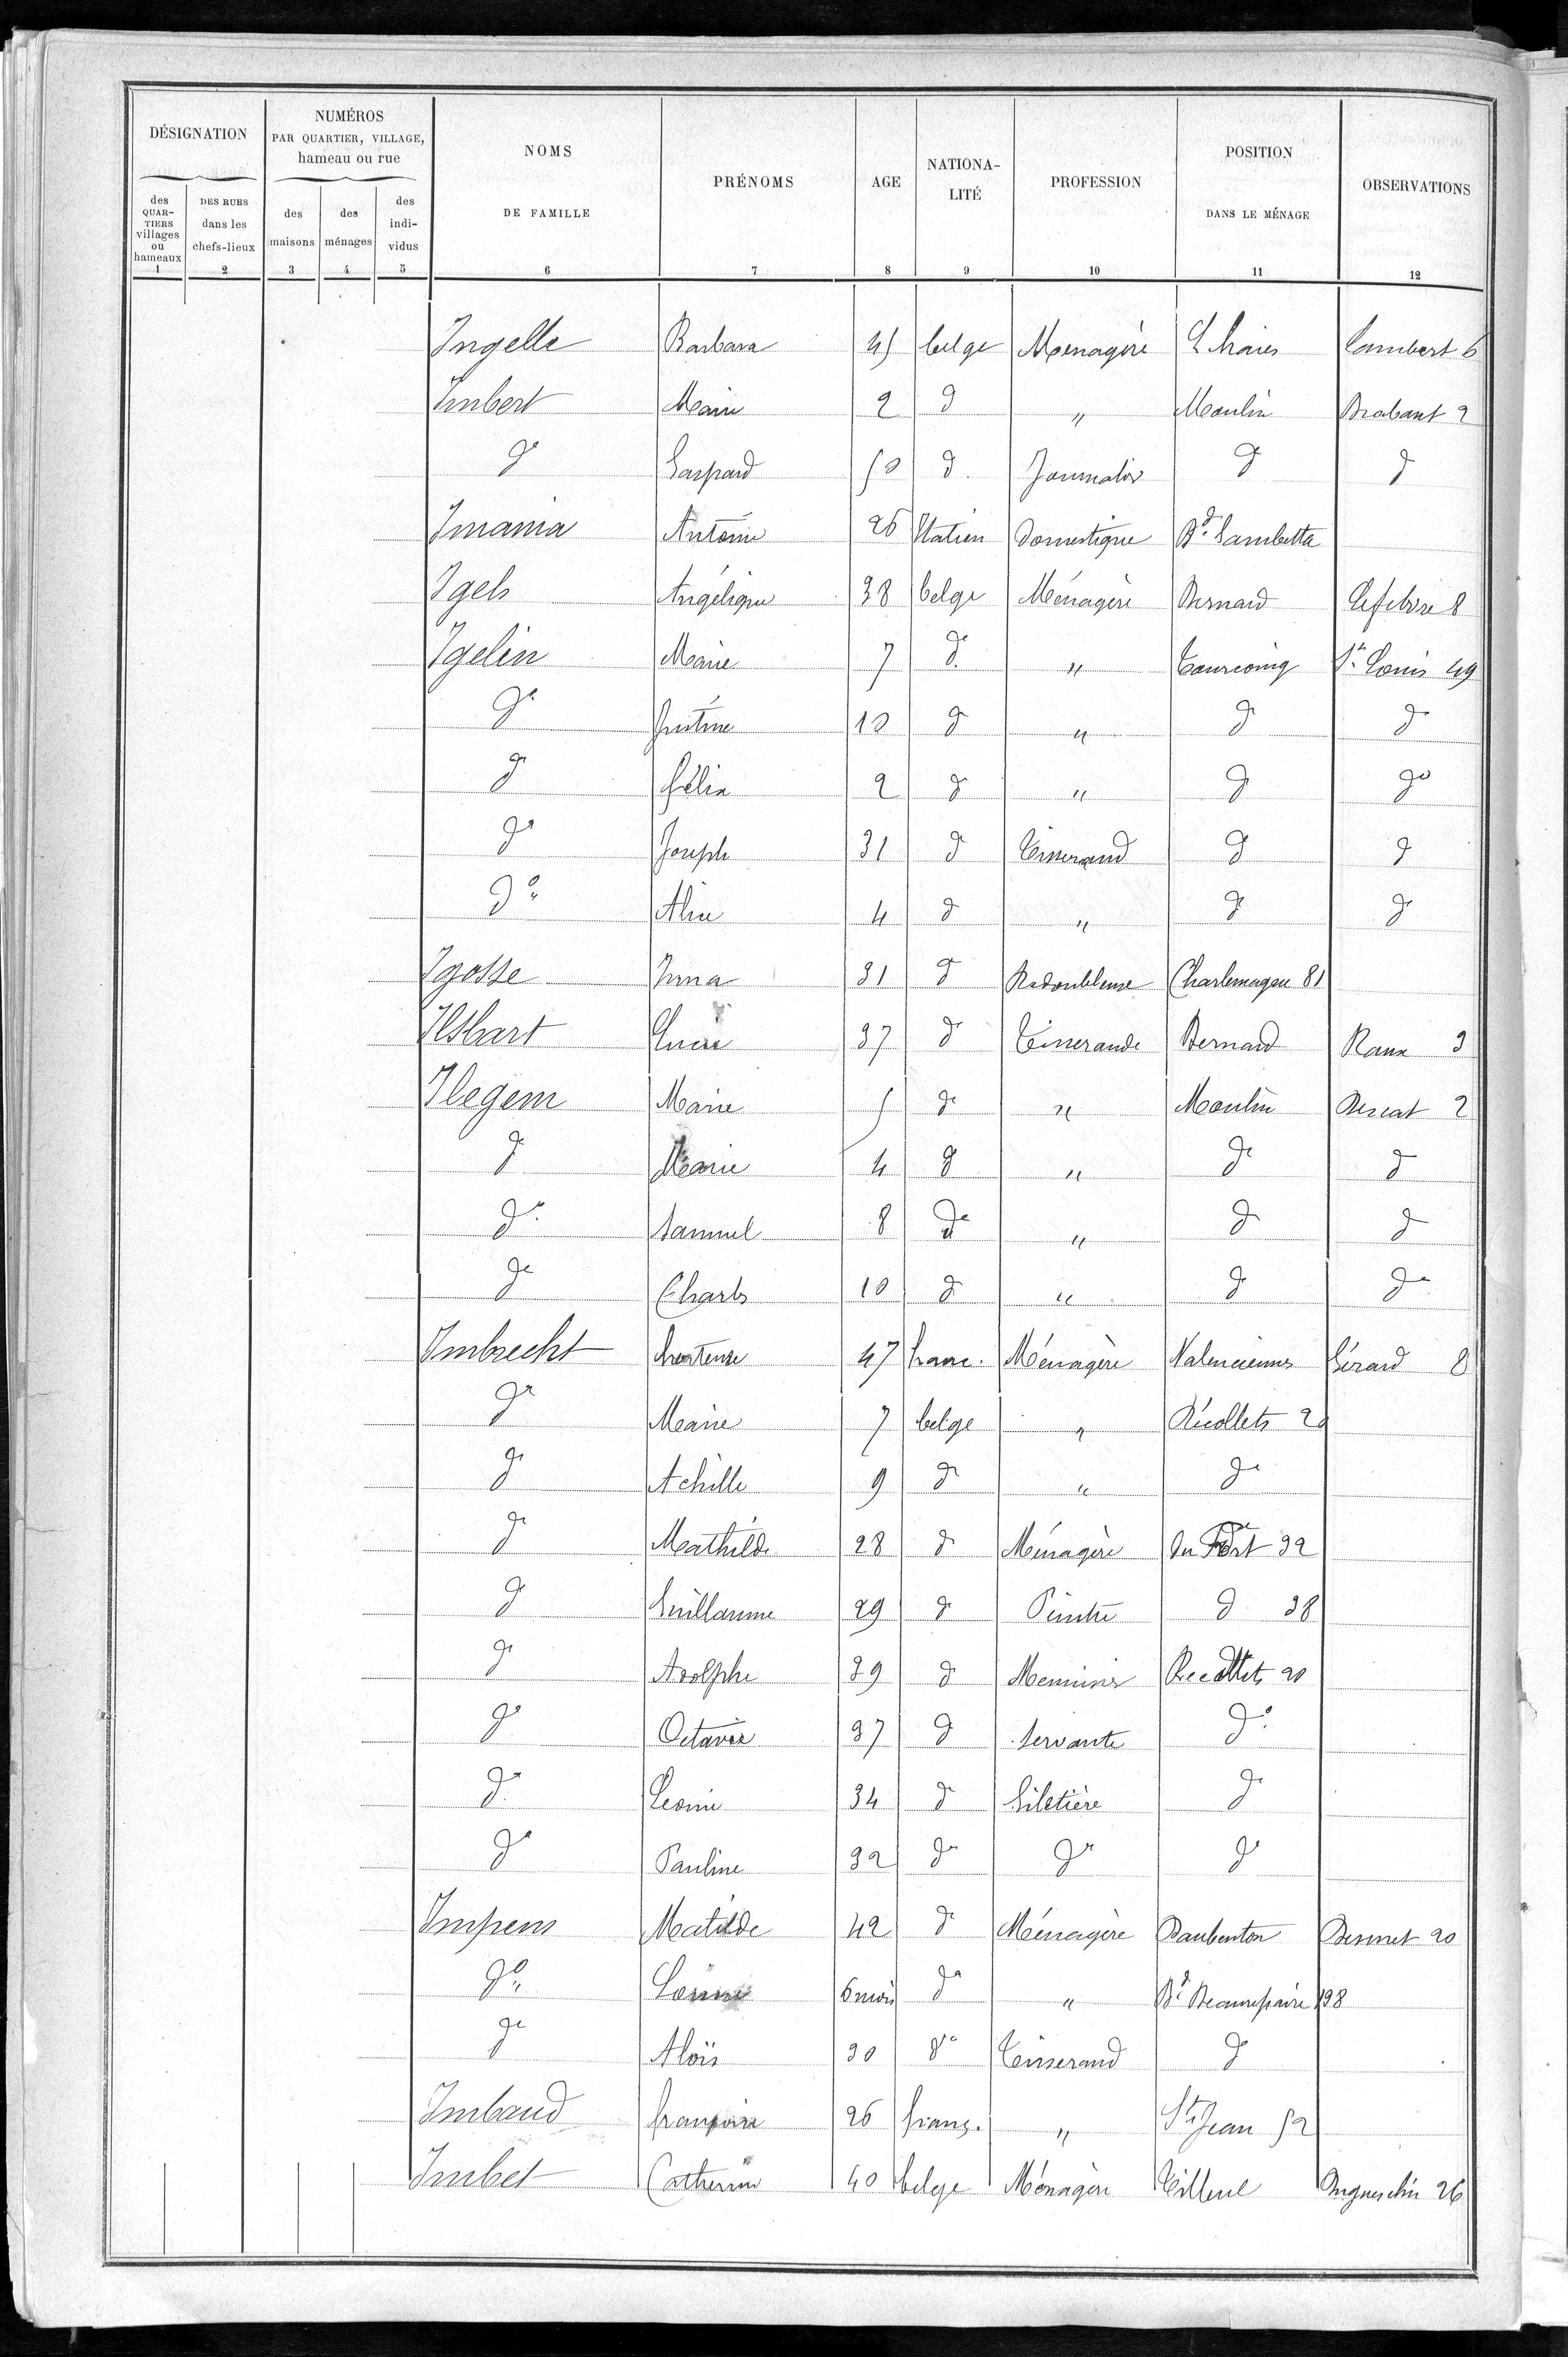 DÉSIGNATION
NUMÉROS PAR QUARTIER, VILLAGE, hameau ou rue
NOMS DE FAMILLE
PRÉNOMS
AGE
NATIONA-LITÉ
PROFESSION
POSITION DANS LE MÉNAGE
OBSERVATIONS
des QUAR-TIERS villages ou hameaux
DES RUES dans les chefs-lieux
des maisons
des ménages
des indi-vidus
1 2 3 4 5 6 7 8 9 10 11 12
Ingelle Barbara 45 belge Ménagère Lambert 6
Imbert Marie 2 d " Moulin Brabant 2
d° Gaspard 50 d Journalier d d
Imania Antonie 26 Italien Domestique Bd Gambetta
Igels Angélique 38 belge Ménagère Bernard Lefebvre 8
Igelin Marie 7 d° " Tourcoing St Louis 49
d° Justine 10 d " d d
d° Félix 2 d " d d°
d° Joseph 31 d Tisserand d d
d° Aline 4 d " d d
Igosse Irma 31 d Redoubleuse Charlemagne 81
Ilsbart 37 d Tisserande Bernard Roux 3
Ilegem Marie 5 d° " Moulin Descat 2
d° Marie 4 d " d° d
d° Samuel 8 d° " d d
d° Charles 10 d " d d°
Imbrecht hortense 47 franc. Ménagère Valenciennes Gérard 8
d° Marie 7 belge " Récollets 20
d° Achille 9 d " d°
d° Mathilde 28 d Ménagère du Fort 32
d Guillaume 29 d Peintre d 38
d° Adolphe 39 d Menuisier Recollets 20
d° Octavie 37 d Servante d°
d° Leonie 34 d Giletière d°
d° Pauline 32 d° d° d°
Impens Matilde 42 d° Ménagère Daubenton Desmet 20
d° 6 mois d° " Bd Beaurepaire 198
d° Aloïs 30 d° Tisserand d°
Imbaud françoise 26 franç. " St Jean 52
Imbet Catherine 40 belge Ménagère Tilleul Duguesclin 26